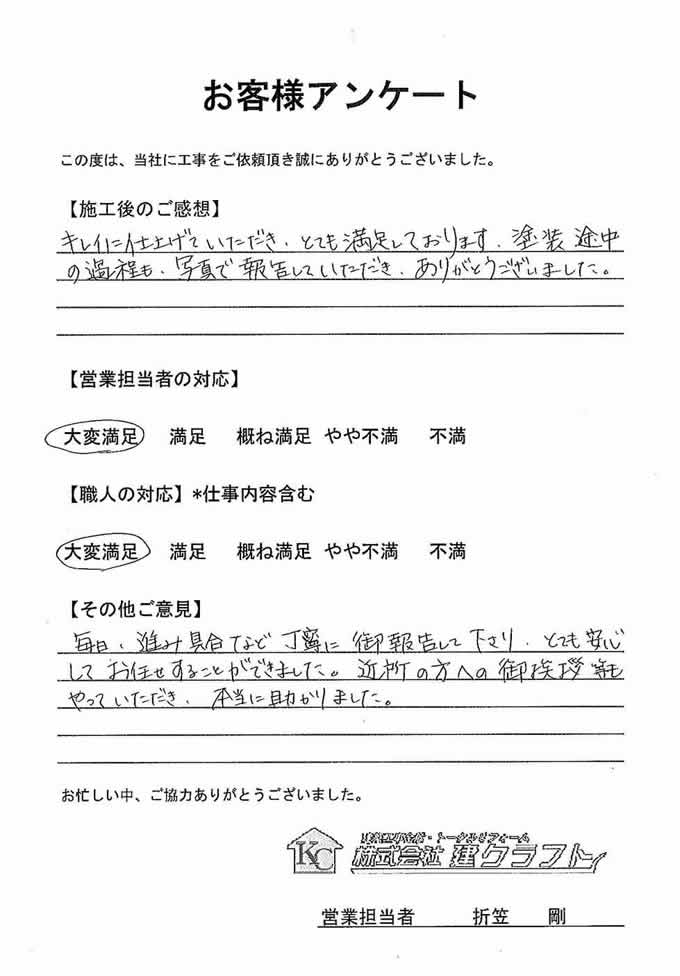 お客様アンケート
この度は、当社に工事をご依頼頂き誠にありがとうございました。
【施工後のご感想】
キレイに仕上げていただき、とても満足しております、塗装途中
の過程も、写真で報告していただき、ありがとうございました。
【営業担当者の対応】
大変満足 満足 概ね満足 やや不満 不満
【職人の対応】*仕事内容含む
大変満足 満足 概ね満足 やや不満 不満
【その他ご意見】
毎日、進み具合など丁寧に御報告して下さり、とても安心
してお任せすることができました。近所の方への御挨拶等も
やっていただき、本当に助かりました。
お忙しい中、ご協力ありがとうございました。
KC
トータルリフォーム
株式会社 建クラフト
営業担当者 折笠 剛